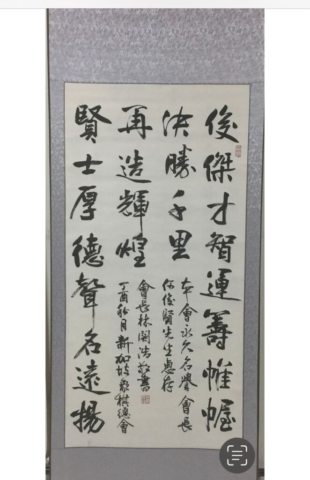 俊傑才智運籌帷幄
決勝千里
再造輝煌
賢士厚德聲名遠揚
本會永久名譽會長
俊賢先生惠存
會長林關浩敬書
丁酉秋月新加坡象棋總會